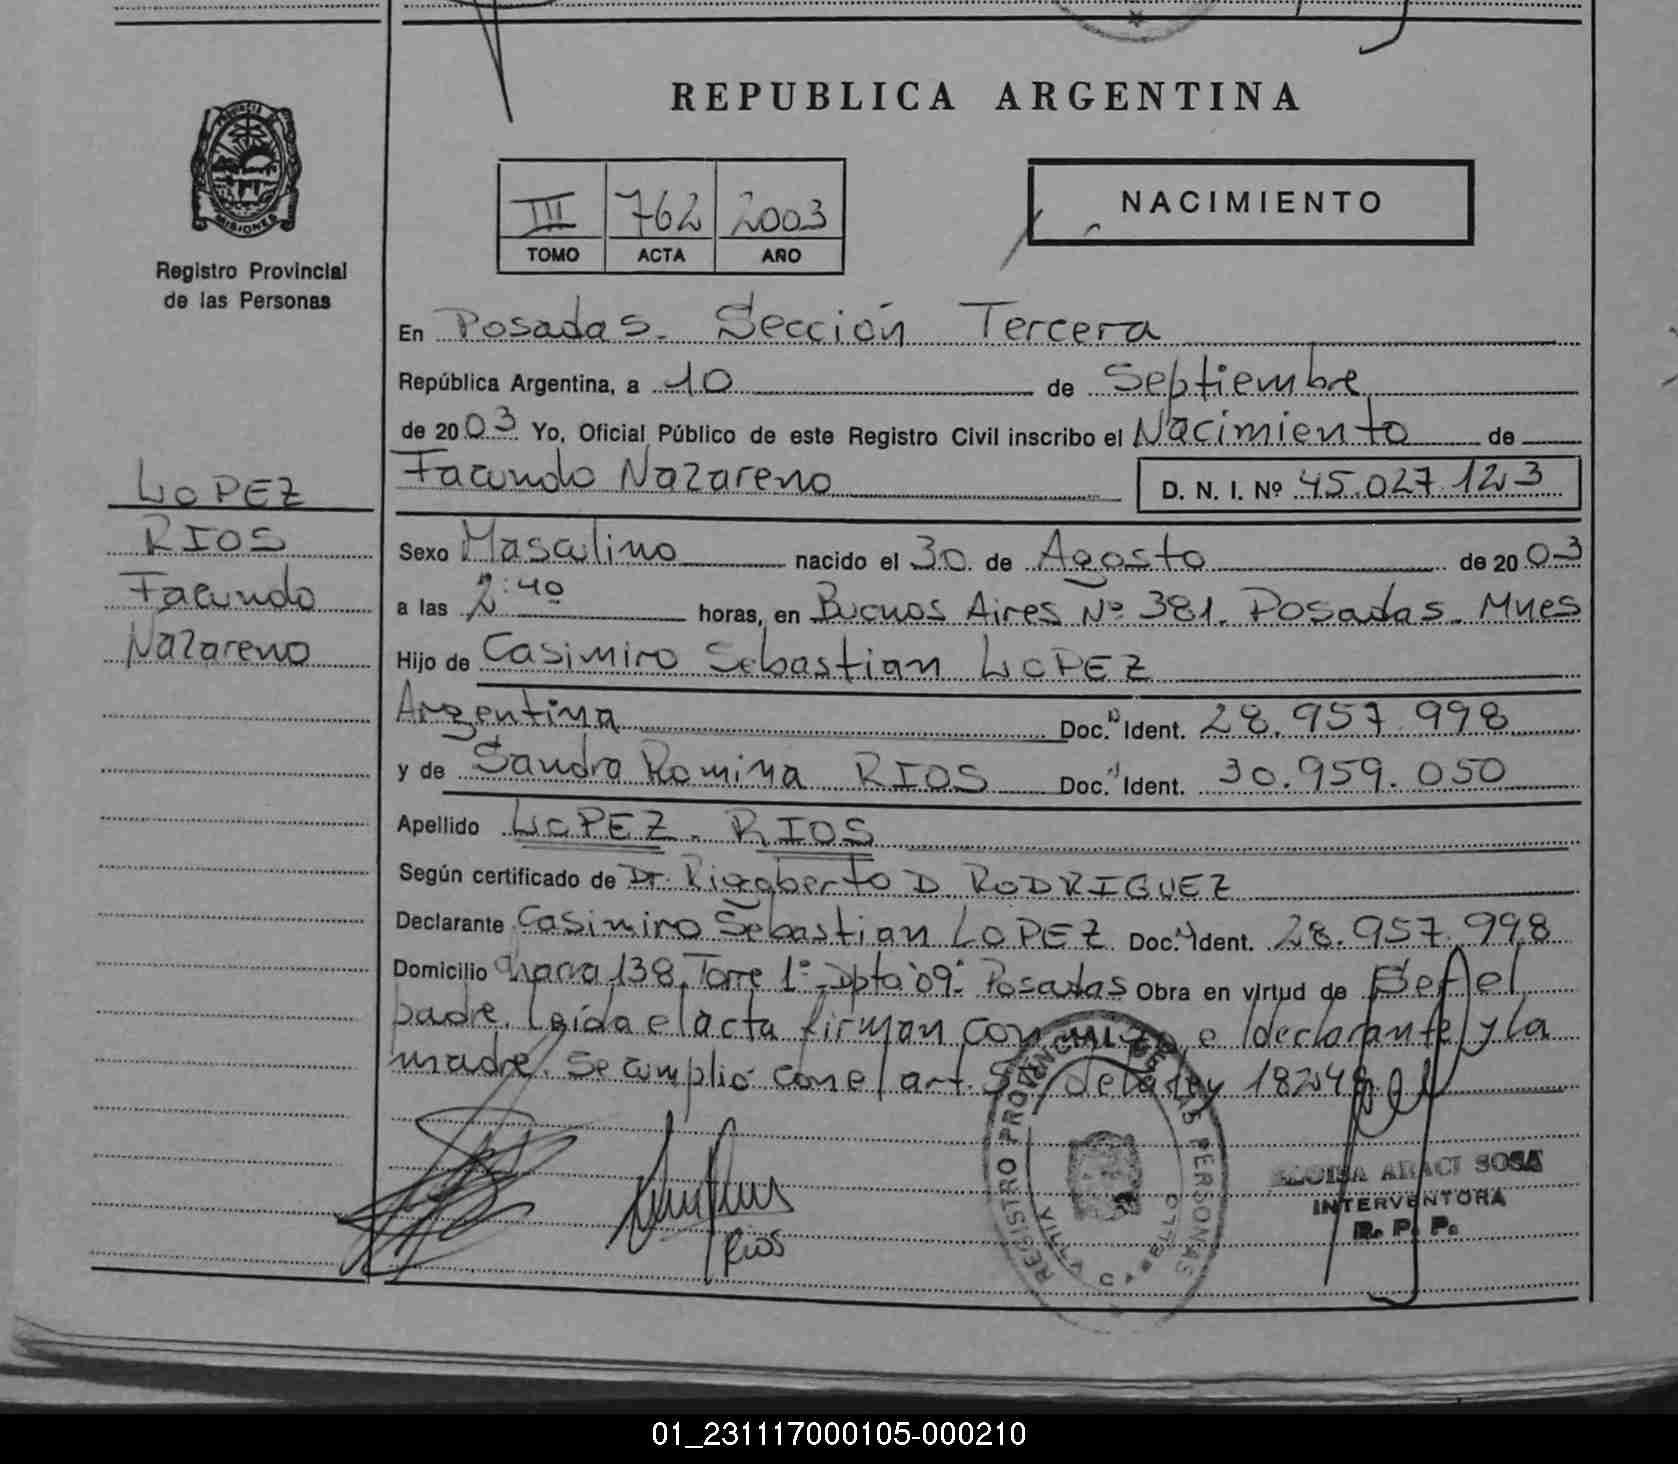 REPUBLICA ARGENTINA
PROVINCIA DE
MISIONES
Registro Provincial
de las Personas
III 762 2003
TOMO ACTA AÑO
NACIMIENTO
En Posadas. Sección Tercera
República Argentina, a 10 de Septiembre
de 2003 Yo, Oficial Público de este Registro Civil inscribo el Nacimiento de
Facundo Nazareno D. N. I. Nº 45.027.123
LOPEZ
RIOS
Facundo
Nazareno
Sexo Masculino nacido el 30 de Agosto de 2003
a las 2:40 horas, en Buenos Aires Nº 381. Posadas. Mnes
Hijo de Casimiro Sebastian LOPEZ
Argentina Doc. Ident. 28.957.998
y de Sandra Romina RIOS Doc. Ident. 30.959.050
Apellido LOPEZ - RIOS
Según certificado de Dr. Rigoberto D RODRIGUEZ
Declarante Casimiro Sebastian LOPEZ Doc. Ident. 28.957.998
Domicilio Chacra 138, Torre 1º Dpto "09" Posadas Obra en virtud de Ser el
padre. Leida el acta firman conmigo e declarante y la
madre. Se cumplió con el art. de la ley 18248.
Rios
REGISTRO PROVINCIAL DE LAS PERSONAS
VILLA CABELLO
ELOISA ARACI SOSA
INTERVENTORA
R. P. P.
01_231117000105-000210